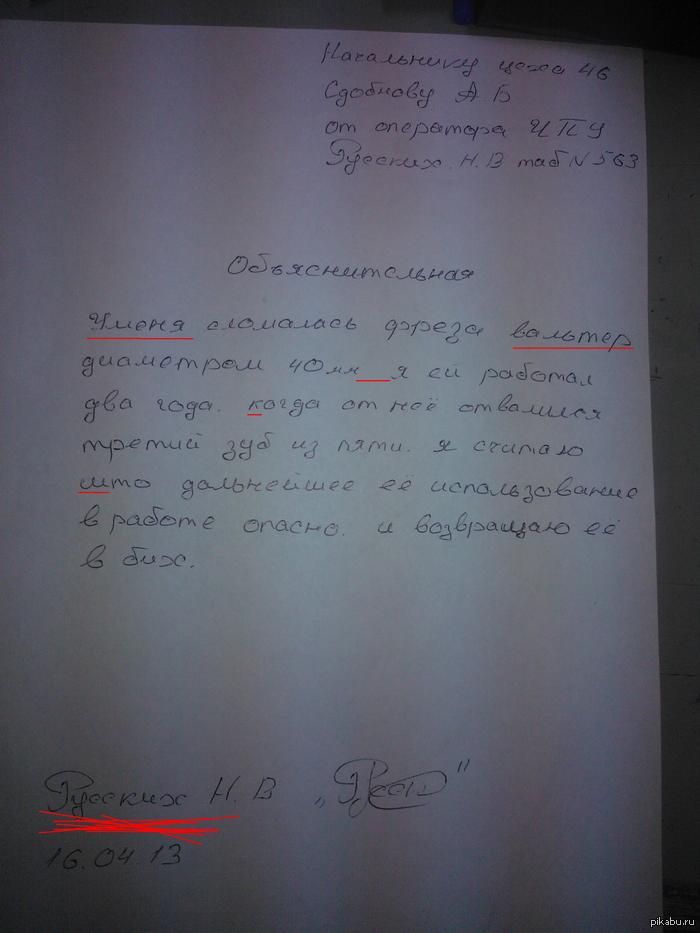 Начальнику цеха 46
Сдобнову А Б
от оператора ЧПУ
Русских. Н. В таб N 563
Объяснительная
Уменя сломалась фреза вальтер
диаметром 40мм я ей работал
два года. когда от неё отвалился
третий зуб из пяти. я считаю
што дальнейшее её использование
в работе опасно. и возвращаю её
в бих.
Русских Н. В
16.04.13
pikabu.ru